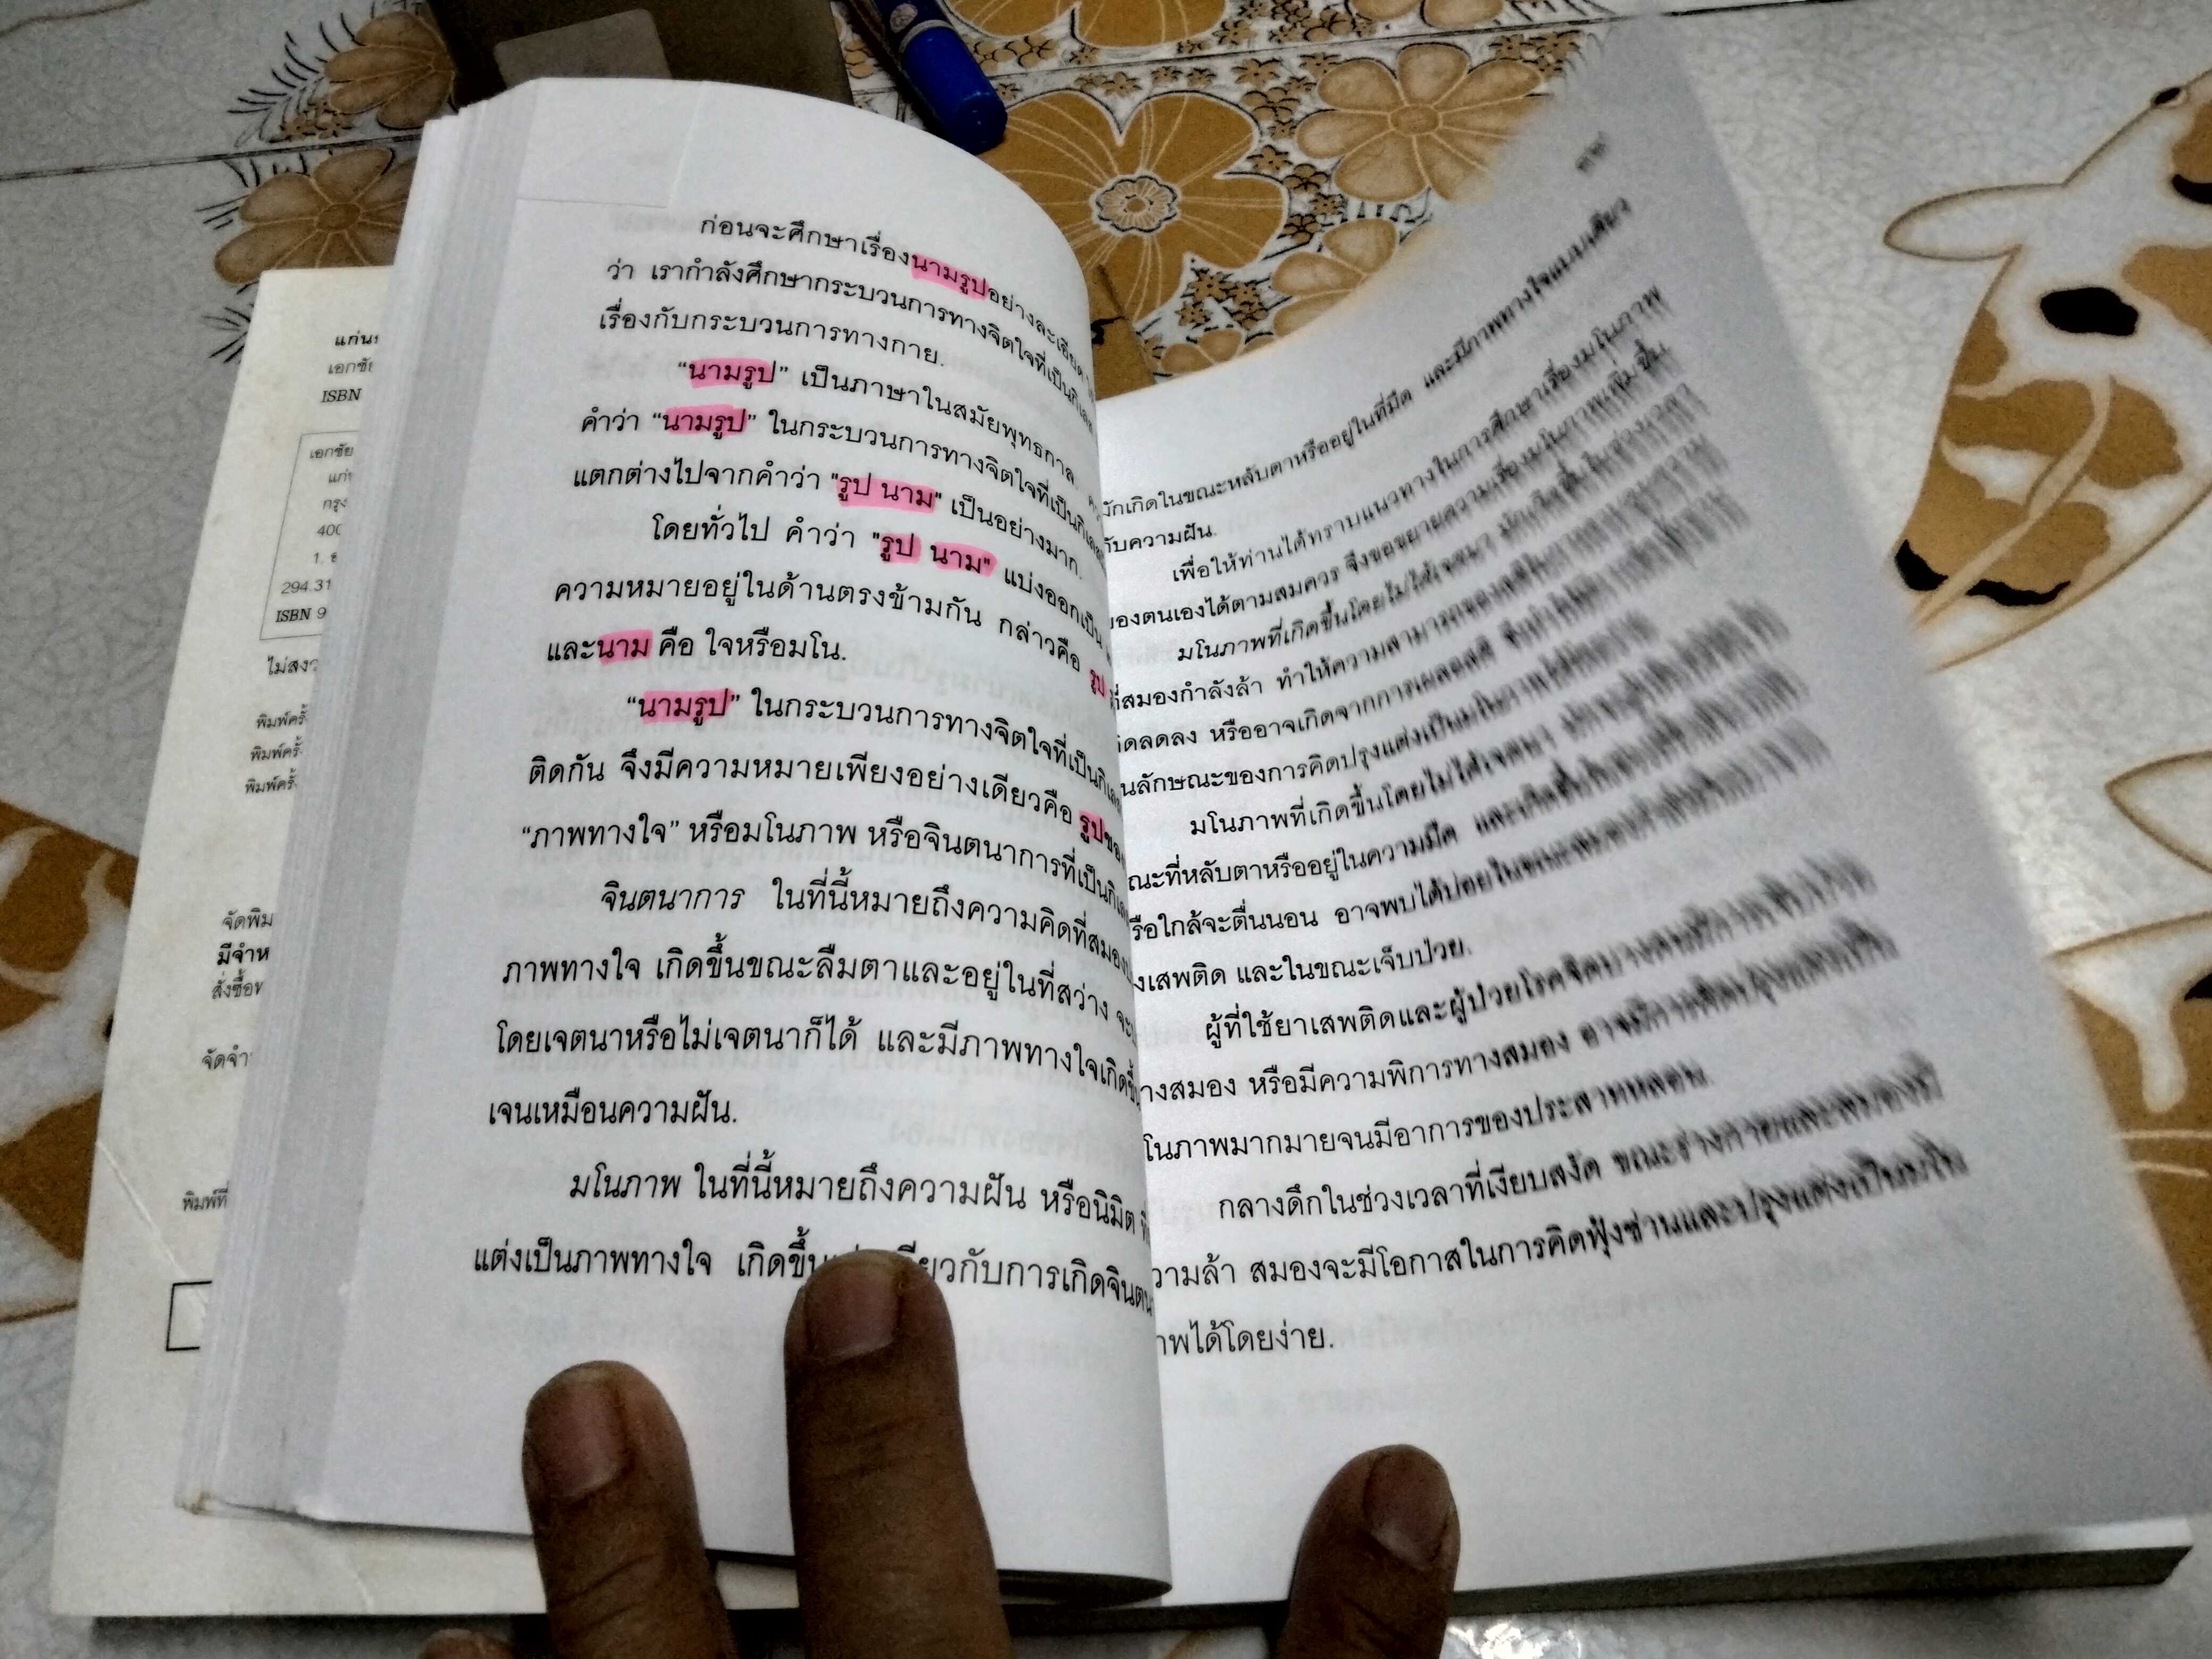 แก่น
เอกชัย
ISBN
เอกชัย
แก่
กรุง
400
1.
294.31
ISBN 9
ไม่สงว
พิมพ์ครั้
พิมพ์ครั้
พิมพ์ครั้
จัดพิม
มีจำห
สั่งซื้อ
จัดจำ
พิมพ์ที่
ก่อนจะศึกษาเรื่องนามรูปอย่างละเอียด
ว่า เรากำลังศึกษากระบวนการทางจิตใจที่เป็นกิเลส
เรื่องกับกระบวนการทางกาย.
“นามรูป” เป็นภาษาในสมัยพุทธกาล
คำว่า “นามรูป” ในกระบวนการทางจิตใจที่เป็นกิเลส
แตกต่างไปจากคำว่า "รูป นาม" เป็นอย่างมาก.
โดยทั่วไป คำว่า "รูป นาม" แบ่งออกเป็น
ความหมายอยู่ในด้านตรงข้ามกัน กล่าวคือ รูป
และนาม คือ ใจหรือมโน.
“นามรูป” ในกระบวนการทางจิตใจที่เป็นกิเล
ติดกัน จึงมีความหมายเพียงอย่างเดียวคือ รูปของ
“ภาพทางใจ” หรือมโนภาพ หรือจินตนาการที่เป็นกิเล
จินตนาการ ในที่นี้หมายถึงความคิดที่สมอง
ภาพทางใจ เกิดขึ้นขณะลืมตาและอยู่ในที่สว่าง จะเ
โดยเจตนาหรือไม่เจตนาก็ได้ และมีภาพทางใจเกิดขึ้
เจนเหมือนความฝัน.
มโนภาพ ในที่นี้หมายถึงความฝัน หรือนิมิต ที่
แต่งเป็นภาพทางใจ เกิดขึ้น เดียวกับการเกิดจินตน
มักเกิดในขณะหลับตาหรืออยู่ในที่มืด และมีภาพทางใจแบบเดียว
กับความฝัน.
เพื่อให้ท่านได้ทราบแนวทางในการศึกษาเรื่องมโนภาพ
ของตนเองได้ตามสมควร จึงขอขยายความเรื่องมโนภาพเพิ่มขึ้น
มโนภาพที่เกิดขึ้นโดยไม่ได้เจตนา มักเกิดขึ้นในช่วงเวลา
ที่สมองกำลังล้า ทำให้ความสามารถของสติในการควบคุมความ
คิดลดลง หรืออาจเกิดจากการเผลอสติ จึงทำให้
นลักษณะของการคิดปรุงแต่งเป็นมโนภาพได้โดยง่าย
มโนภาพที่เกิดขึ้นโดยไม่ได้เจตนา
ณะที่หลับตาหรืออยู่ในความมืด และเกิดขึ้นใน
รือใกล้จะตื่นนอน อาจพบได้บ่อยในขณะ
งเสพติด และในขณะเจ็บป่วย.
ผู้ที่ใช้ยาเสพติดและผู้ป่วยโรคจิตบางคนที่มี
างสมอง หรือมีความพิการทางสมอง อาจมีการคิดปรุงแต่งเป็น
โนภาพมากมายจนมีอาการของประสาทหลอน.
กลางดึกในช่วงเวลาที่เงียบสงัด ขณะร่างกายและสมองมี
วามล้า สมองจะมีโอกาสในการคิดฟุ้งซ่านและปรุงแต่งเป็นมโน
าพได้โดยง่าย.